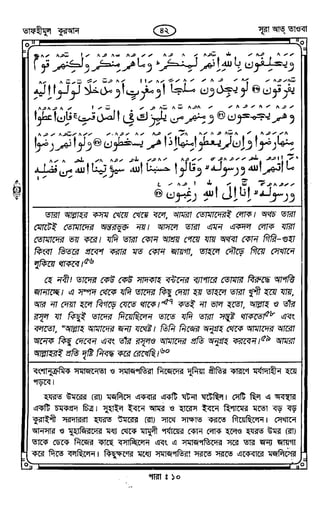 তাফহীমুল কুরআন
৪২
সূরা আত্ তাওবা
وَيَحْلِفُونَ بِاللَّهِ إِنَّهُمْ لَمِنْكُمْ وَمَا هُمْ مِنْكُمْ وَلَٰكِنَّهُمْ قَوْمٌ
يَفْرَقُونَ ﴿٥٦﴾ لَوْ يَجِدُونَ مَلْجَأً أَوْ مَغَارَاتٍ أَوْ مُدَّخَلًا لَوَلَّوْا إِلَيْهِ
وَهُمْ يَجْمَحُونَ ﴿٥٧﴾ وَمِنْهُمْ مَنْ يَلْمِزُكَ فِي الصَّدَقَاتِ فَإِنْ أُعْطُوا
مِنْهَا رَضُوا وَإِنْ لَمْ يُعْطَوْا مِنْهَا إِذَا هُمْ يَسْخَطُونَ ﴿٥٨﴾ وَلَوْ أَنَّهُمْ رَضُوا
مَا آتَاهُمُ اللَّهُ وَرَسُولُهُ وَقَالُوا حَسْبُنَا اللَّهُ سَيُؤْتِينَا اللَّهُ مِنْ فَضْلِهِ
وَرَسُولُهُ إِنَّا إِلَى اللَّهِ رَاغِبُونَ ﴿٥٩﴾
তারা আল্লাহর কসম খেয়ে খেয়ে বলে, আমরা তোমাদেরই লোক। অথচ তারা
মোটেই তোমাদের অন্তরভুক্ত নয়। আসলে তারা এমন একদল লোক যারা
তোমাদের ভয় করে। যদি তারা কোন আশ্রয় পেয়ে যায় অথবা কোন গিরি-গুহা
কিংবা ভিতরে প্রবেশ করার মত কোন জায়গা, তাহলে দৌড়ে গিয়ে সেখানে
লুকিয়ে থাকবে।৫৬
হে নবী! তাদের কেউ কেউ সাদকাহ বন্টনের ব্যাপারে তোমার বিরুদ্ধে আপত্তি
জানাচ্ছে। এ সম্পদ থেকে যদি তাদের কিছু দেয়া হয় তাহলে তারা খুশী হয়ে যায়,
আর না দেয়া হলে বিগড়ে যেতে থাকে।৫৭ কতই না ভাল হতো, আল্লাহ ও তাঁর
রসূল যা কিছুই তাদের দিয়েছিলেন তাতে যদি তারা সন্তুষ্ট থাকতো৫৮ এবং
বলতো, "আল্লাহ আমাদের জন্য যথেষ্ট। তিনি নিজের অনুগ্রহ থেকে আমাদের আরো
অনেক কিছু দেবেন এবং তাঁর রসূলও আমাদের প্রতি অনুগ্রহ করবেন।৫৯ আমরা
আল্লাহরই প্রতি দৃষ্টি নিবদ্ধ করে রেখেছি।৬০
বংশানুক্রমিক সমাজনেতা ও সমাজপতিরা নিজেদের দুনিয়া প্রীতির কারণে মর্যাদাহীন হয়ে
পড়বে।
হযরত উমরের (রা) মজলিসে একবার একটি ঘটনা ঘটেছিল। সেটি ছিল এ অবস্থার
একটি চমকপ্রদ চিত্র। সুহাইল ইবনে আমর ও হারেস ইবনে হিশামের মতো বড় বড়
কুরাইশী সরদাররা হযরত উমরের (রা) সাথে সাক্ষাত করতে গিয়েছিলেন। সেখানে
আনসার ও মুহাজিরদের মধ্য থেকে মামুলী পর্যায়ের কোন লোক হলেও হযরত উমর (রা)
তাকে ডেকে নিজের কাছে বসাচ্ছিলেন এবং এ সমাজপতিদের সরে তার জন্য জায়গা
করে দিতে বলছিলেন। কিছুক্ষণের মধ্যে সমাজপতিরা সরতে সরতে একেবারে মজলিসের
পারা : ১০